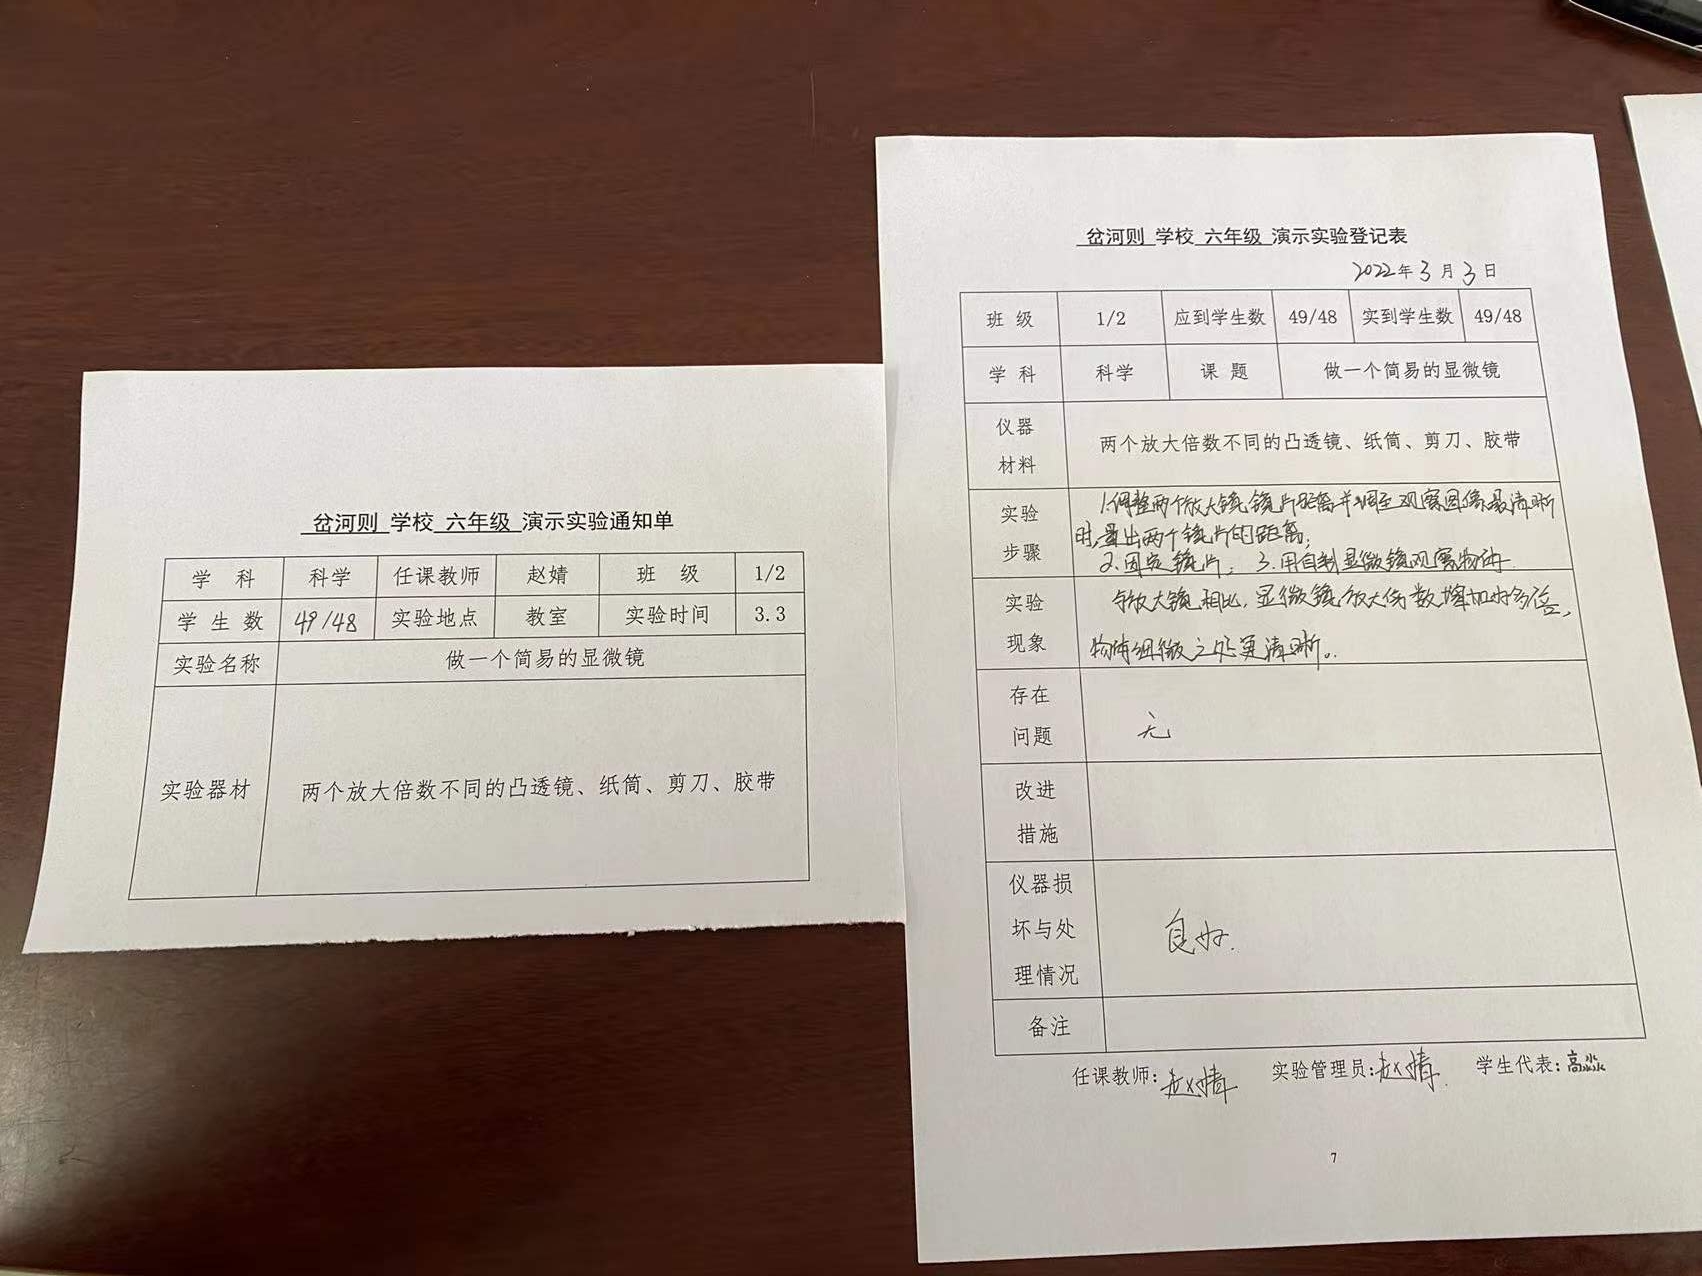 岔河则 学校 六年级 演示实验通知单
学 科 科学 任课教师 赵婧 班 级 1/2
学 生 数 49/48 实验地点 教室 实验时间 3.3
实验名称 做一个简易的显微镜
实验器材 两个放大倍数不同的凸透镜、纸筒、剪刀、胶带
岔河则 学校 六年级 演示实验登记表
2022年3月3日
班 级 1/2 应到学生数 49/48 实到学生数 49/48
学 科 科学 课 题 做一个简易的显微镜
仪器
材料
两个放大倍数不同的凸透镜、纸筒、剪刀、胶带
实验
步骤
1.调整两个放大镜镜片距离并调至观察图像最清晰
时,量出两个镜片的距离;
2.固定镜片; 3.用自制显微镜观察物体.
实验
现象
与放大镜相比,显微镜放大倍数增加好多倍,
物体细微之处更清晰。
存在
问题
无
改进
措施
仪器损
坏与处
理情况
良好.
备注
任课教师:赵婧 实验管理员:赵婧 学生代表:高淼
7